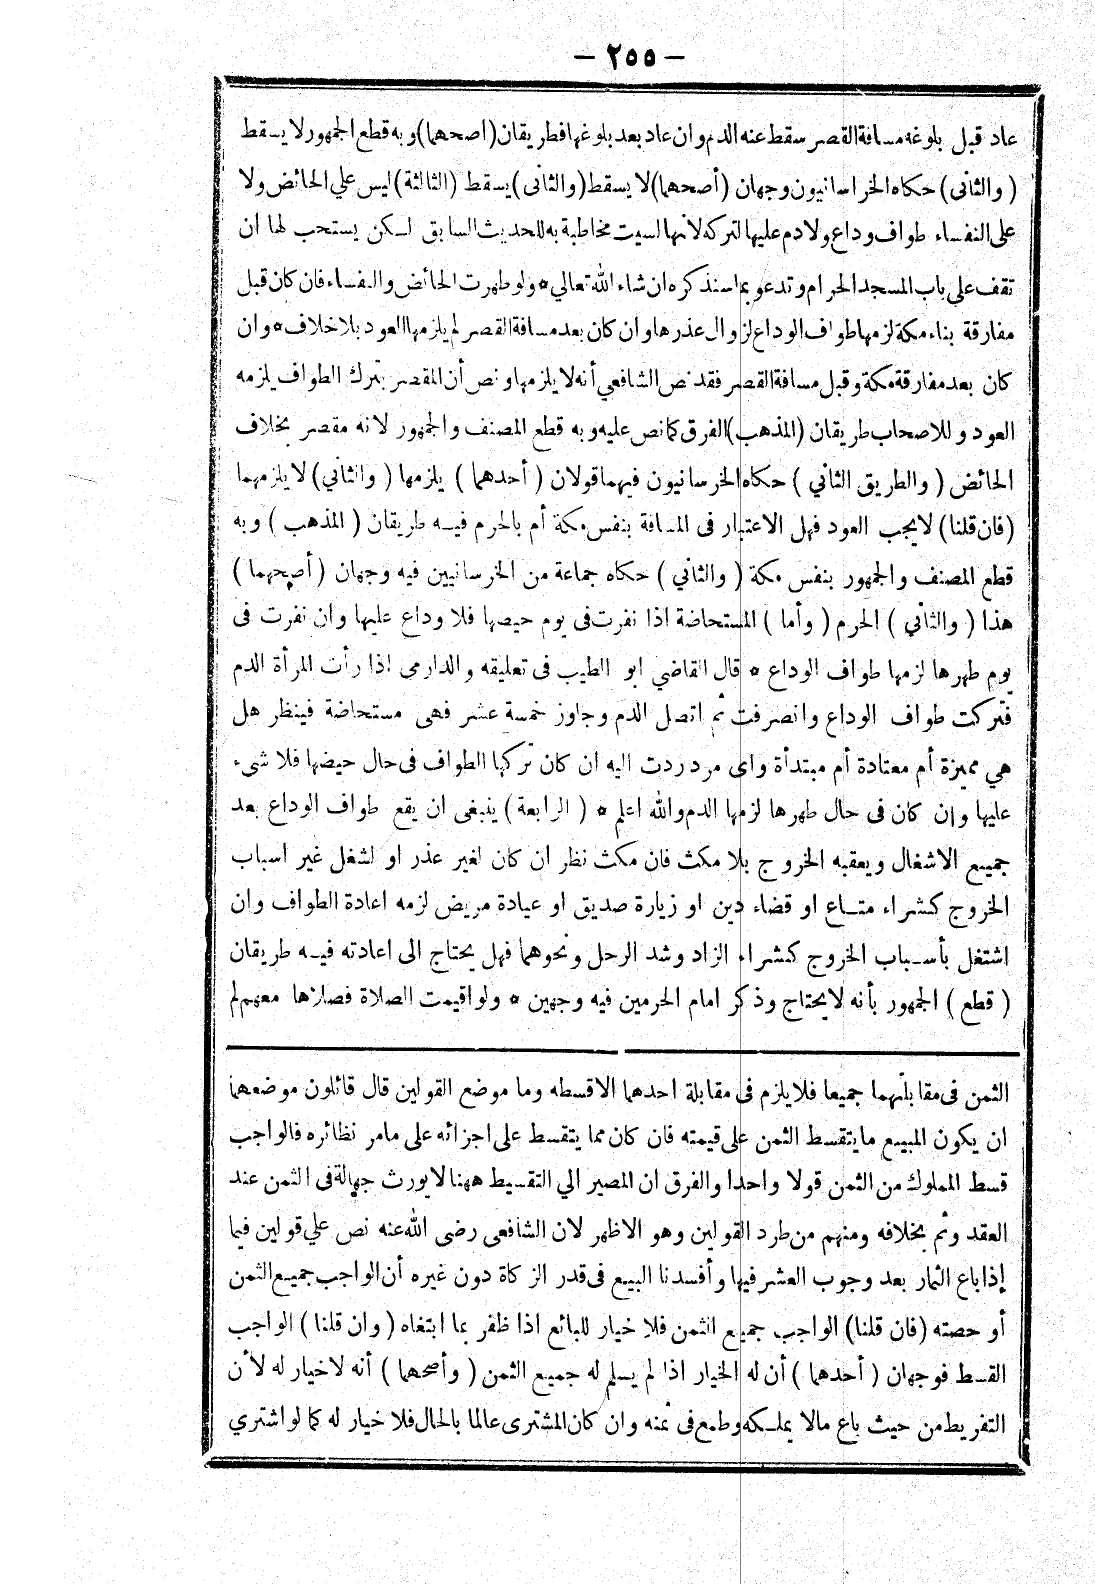 — ٢٥٥ —
عاد قبل بلوغه مسافة القصر سقط عنه الدم وان عاد بعد بلوغها فطريقان (اصحهما) وبه قطع الجمهور لا يسقط
(والثانى) حكاه الخراسانيون وجهان (أصحهما) لا يسقط (والثانى) يسقط (الثالثة) ليس علي الحائض ولا
على النفساء طواف وداع ولا دم عليها لتركه لانها ليست مخاطبة به للحديث السابق لكن يستحب لها ان
تقف على باب المسجد الحرام وتدعو بما سنذكره ان شاء الله تعالي * ولو طهرت الحائض والنفساء فان كان قبل
مفارقة بناء مكة لزمها طواف الوداع لزوال عذرها وان كان بعد مسافة القصر لم يلزمها العود بلا خلاف * وان
كان بعد مفارقة مكة وقبل مسافة القصر فقد نص الشافعي أنه لا يلزمها ونص أن المقصر بترك الطواف يلزمه
العود وللاصحاب طريقان (المذهب) الفرق كما نص عليه وبه قطع المصنف والجمهور لانه مقصر بخلاف
الحائض (والطريق الثاني) حكاه الخرسانيون فيهما قولان (أحدهما) يلزمها (والثاني) لا يلزمهما
(فان قلنا) لا يجب العود فهل الاعتبار فى المسافة بنفس مكة أم بالحرم فيه طريقان (المذهب) وبه
قطع المصنف والجمهور بنفس مكة (والثاني) حكاه جماعة من الخرسانيين فيه وجهان (أصحهما)
هذا (والثاني) الحرم (وأما) المستحاضة اذا نفرت فى يوم حيضها فلا وداع عليها وان نفرت فى
يوم طهرها لزمها طواف الوداع * قال القاضي ابو الطيب فى تعليقه والدارمى اذا رأت المرأة الدم
فتركت طواف الوداع وانصرفت ثم اتصل الدم وجاوز خمسة عشر فهى مستحاضة فينظر هل
هي مميزة أم معتادة أم مبتدأة واى مرد ردت اليه ان كان تركها الطواف فى حال حيضها فلا شىء
عليها وإن كان فى حال طهرها لزمها الدم والله اعلم * (الرابعة) ينبغى ان يقع طواف الوداع بعد
جميع الاشغال ويعقبه الخروج بلا مكث فان مكث نظر ان كان لغير عذر او لشغل غير اسباب
الخروج كشراء متاع او قضاء دين او زيارة صديق او عيادة مريض لزمه اعادة الطواف وان
اشتغل بأسباب الخروج كشراء الزاد وشد الرحل ونحوهما فهل يحتاج الى اعادته فيه طريقان
(قطع) الجمهور بأنه لا يحتاج وذكر امام الحرمين فيه وجهين * ولو اقيمت الصلاة فصلاها معهم لم
الثمن فى مقابلتهما جميعا فلا يلزم فى مقابلة احدهما الا قسطه وما موضع القولين قال قائلون موضعهما
ان يكون المبيع ما يتقسط الثمن على قيمته فان كان مما يتقسط على اجزائه على مامر نظائره فالواجب
قسط المملوك من الثمن قولا واحدا والفرق ان المصير الي التقسيط ههنا لا يورث جهالة فى الثمن عند
العقد وثم بخلافه ومنهم من طرد القولين وهو الاظهر لان الشافعى رضى الله عنه نص علي قولين فيما
إذا باع الثمار بعد وجوب العشر فيها وأفسدنا البيع فى قدر الزكاة دون غيره أن الواجب جميع الثمن
أو حصته (فان قلنا) الواجب جميع الثمن فلا خيار للبائع اذا ظفر بما ابتغاه (وان قلنا) الواجب
القسط فوجهان (أحدهما) أن له الخيار اذا لم يسلم له جميع الثمن (وأصحهما) أنه لا خيار له لأن
التفريط من حيث باع مالا يملكه وطمع فى ثمنه وان كان المشترى عالما بالحال فلا خيار له كما لو اشتري